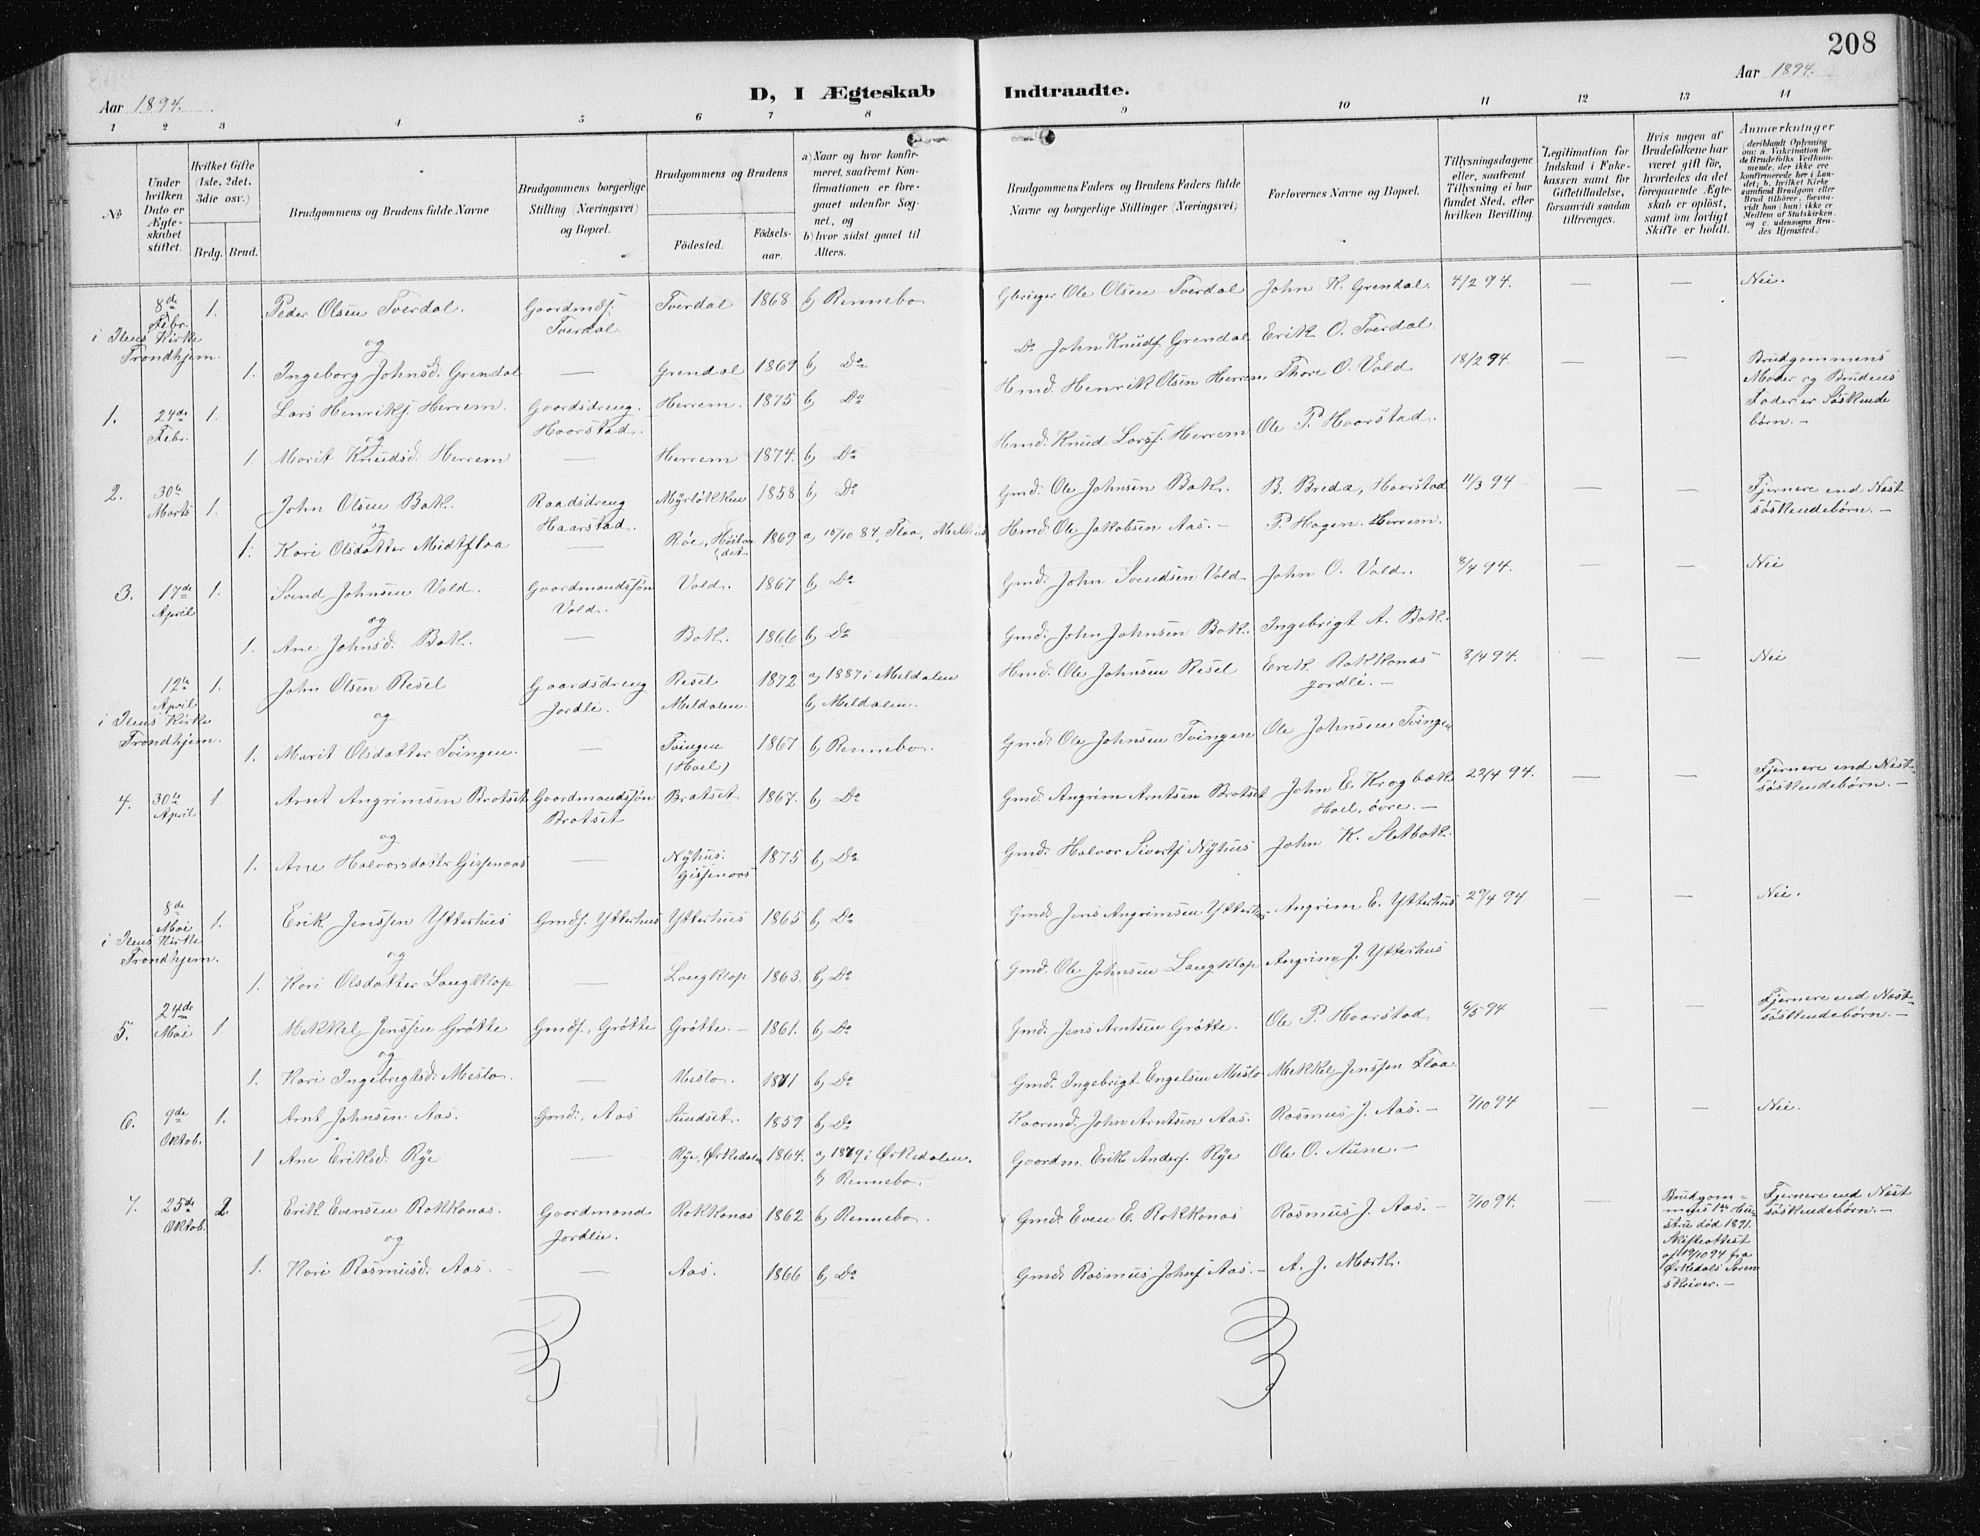 208
Aar 1894.
D, I Ægteskab Indtraadte.
Aar 1894.
1 2 3 4 5 6 7 8 9 10 11 12 13 14
No
Under hvilken Dato er Ægteskabet stiftet.
Hvilket Gifte (1ste, 2det, 3die osv.)
Brdg. Brud.
Brudgommens og Brudens fulde Navne
Brudgommens borgerlige Stilling (Næringsvei) og Bopæl.
Brudgommens og Brudens
Födested. Födselsaar.
a) Naar og hvor konfirmeret, saafremt Konfirmationen er foregaaet udenfor Sognet, og
b) hvor sidst gaaet til Alters.
Brudgommens Faders og Brudens Faders fulde Navne og borgerlige Stillinger (Næringsvei)
Forlovernes Navne og Bopæl.
Tillysningsdagene eller, saafremt Tillysning ei har fundet Sted, efter hvilken Bevilling.
Legitimation for Indskud i Enkekassen samt for Giftetilladelse, forsaavidt saadan tiltrænges.
Hvis nogen af Brudefolkene har været gift för, hvorledes da det foregaaende Ægteskab er oplöst, samt om lovligt Skifte er holdt.
Anmærkninger (deriblandt Oplysning om: a. Vakcination for de Brudefolks Vedkommende, der ikke ere konfirmerede her i Landet; b. hvilket Kirkesamfund Brudgom eller Brud tilhörer, forsaavidt han (hun) ikke er Medlem af Statskirken, og c. udensogns Brudes Hjemsted.)
8de Febr. 1. Peder Olsen Tverdal. Gaardmds. Tverdal Tverdal 1868 b) Rennebo Gbruger Ole Olsen Tverdal John K. Grendal. 4/2 94. — — Nei.
i Ilens Kirke Trondhjem.
og
1. Ingeborg Johnsd. Grendal — Grendal 1869 b) Do Do John Knuds. Grendal Erik O. Tverdal.
1. 24de Febr. 1. Lars Henriks. Herrem. Gaardsdreng. Haarstad. Herrem. 1875 b) Do Hmd. Henrik Olsen Herrem. Thore O. Vold 18/2 94. — — Brudgommens Moder og Brudens Fader er Søskendebørn. —
og
1. Marit Knudsd. Herrem — Herrem 1874. b) Do Hmd. Knud Larss. Herrem Ole P. Haarstad.
2. 30te Marts 1. John Olsen Bak. Raadsdreng Haarstad. Myrløkken 1858 b) Do Gmd. Ole Johnsen Bak. B. Breda, Haarstad 11/3 94 — — Fjernere end Næstsøskendebørn. —
og
1. Kari Olsdatter Midtfloa — Røe, 1869 a) 15/10 84, Floa, Hmd. Ole Jakobsen Aas. — P. Hagen. Herrem.
3. 17de April 1. Svend Johnsen Vold. Gaardmandssøn Vold. Vold. 1867 b) Do Gmd. John Svendsen Vold John O. Vold. 8/4 94. — — Nei
og
1. Ane Johnsd. Bak. — Bak. 1866 b) Do Gmd. John Johnsen Bak. Ingebrigt A. Bak.
12te April 1. John Olsen Resel Gaardsdreng Jordli. Resel Meldalen. 1872 a) 1887 i Meldalen b) Meldalen. Hmd. Ole Johnsen Resel Erik Rokkonas Jordli. — 8/4 94. — — Nei
i Ilens Kirke Trondhjem.
og
1. Marit Olsdatter Tvingen. — Tvingen (Hoel) 1867 b) Rennebo. Gmd. Ole Johnsen Tvingen Ole Johnsen Tvingen
4. 30te April 1. Arnt Angrimsen Bratset Gaardmandssøn Bratset Bratset 1867. b) Do Gmd. Angrim Arntsen Bratset John E. Krogbæk Hoel, øvre. — 22/4 94. — — Fjernere end Næstsøskendebørn. —
og
1. Ane Halvorsdatter Gisjenaas — Nyhus. Gisjenaas 1875 b) Do Gmd. Halvor Siverts. Nyhus John K. Sletbak.
8de Mai 1. Erik Jenssen Ytterhus Gmds. Ytterhus Ytterhus 1865 b) Do Gmd. Jens Angrimsen Ytterhus. Angrim E. Ytterhus 29/4 94 — — Nei.
i Ilens Kirke Trondhjem.
og
1. Kari Olsdatter Langklop — Langklop 1863. b) Do Gmd. Ole Johnsen Langklop Angrim J. Ytterhus
5. 24de Mai 1. Mekkel Jenssen Grøtte Gmds. Grøtte Grøtte. — 1861. b) Do Gmd. Jens Arntsen Grøtte. Ole P. Haarstad 6/5 94 — — Fjernere end Næstsøskendebørn. —
og
1. Kari Ingebrigtsd. Meslo. — Meslo. 1871 b) Do Gmd. Ingebrigt Engelsen Meslo Mekkel Jenssen Floa.
6. 9de Oktob. 1. Arnt Johnsen Aas. Gmd., Aas Sundset. 1859 b) Do Kaarmd. John Arntsen Aas. Rasmus J. Aas. — 7/10 94 — — Nei.
1 Ane Eriksd. Rye — Rye, Ørkedalen 1864. a) 1879 i Ørkedalen. b) Rennebo. Gaardm. Erik Anders. Rye Ole O. Aune. —
7. 25de Oktob. 2. Erik Evensen Rokkonas. Gaardmand Jordlie. Rokkonas 1862 b) Rennebo. Gmd. Even E. Rokkonas Rasmus J. Aas. — 7/10 94. — Brudgommens 1ste Hustru død 1891. Skifteattest af 19/10 94 fra Ørkedals Sorenskriver. — Fjernere end Næstsøskendebørn. —
og
1. Kari Rasmusd. Aas. — Aas. 1866 b) Do Gmd. Rasmus Johns. Aas. — A. J. Mærk.